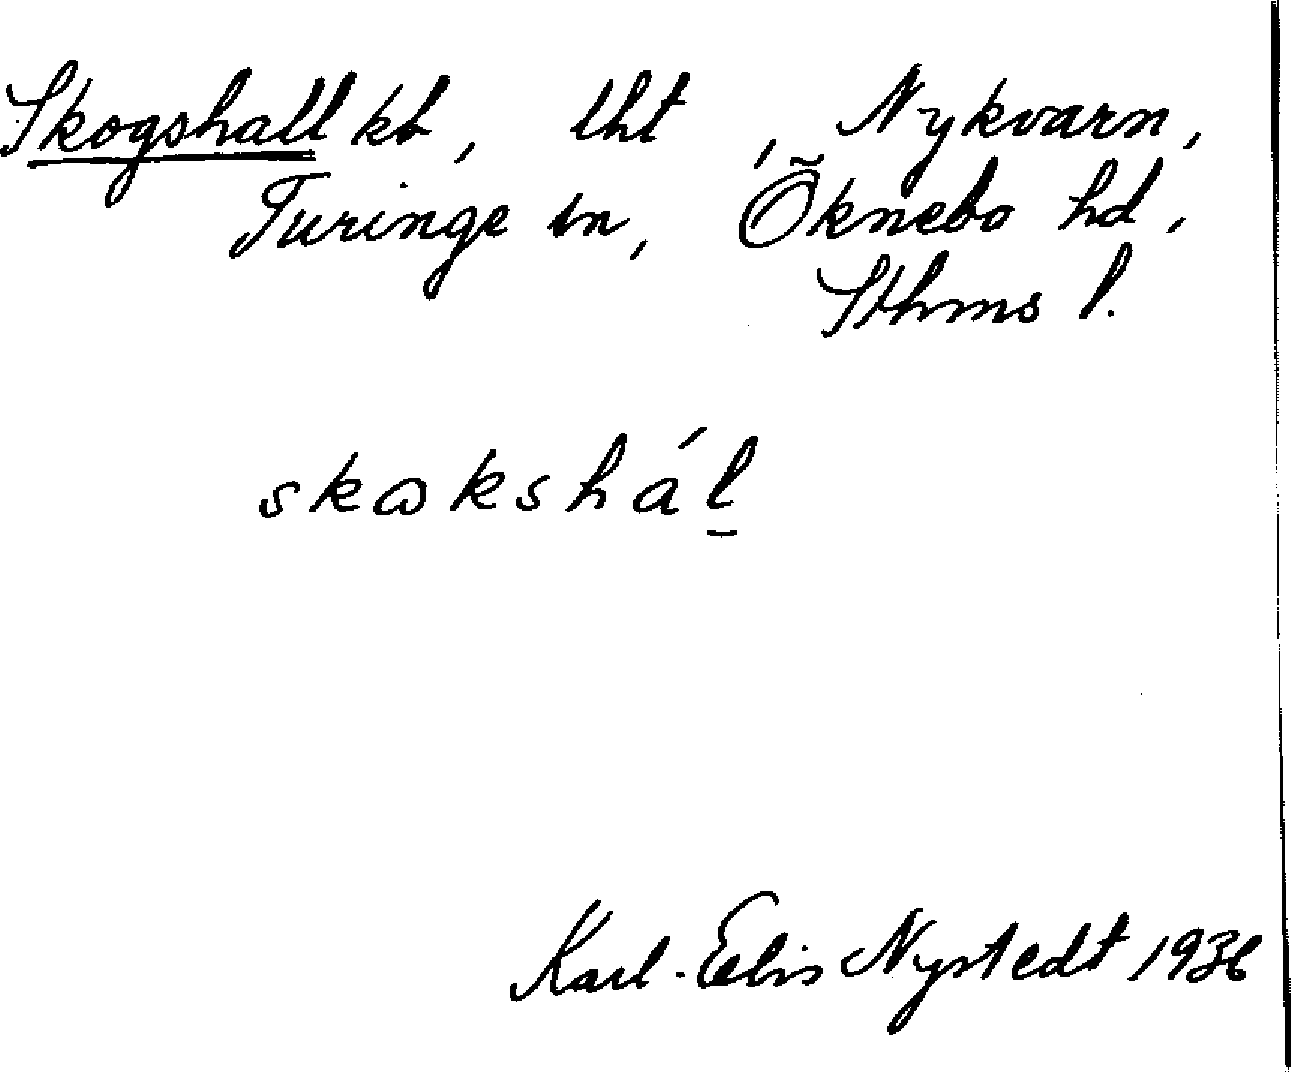 Skogshall kb, lht, Nykvarn,
Turinge sn, Öknebo hd,
Sthms l.
skɷkshál̲
Karl-Elis Nystedt 1936